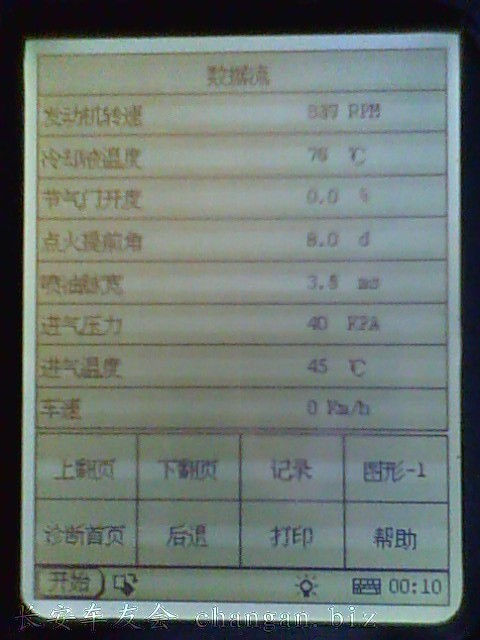 数据流
发动机转速 837 RPM
冷却液温度 76 ℃
节气门开度 0.0 %
点火提前角 8.0 d
喷油脉宽 3.8 ms
进气压力 40 KPA
进气温度 45 ℃
车速 0 Km/h
上翻页 下翻页 记录 图形-1
诊断首页 后退 打印 帮助
开始 00:10
长安车友会 changan.biz